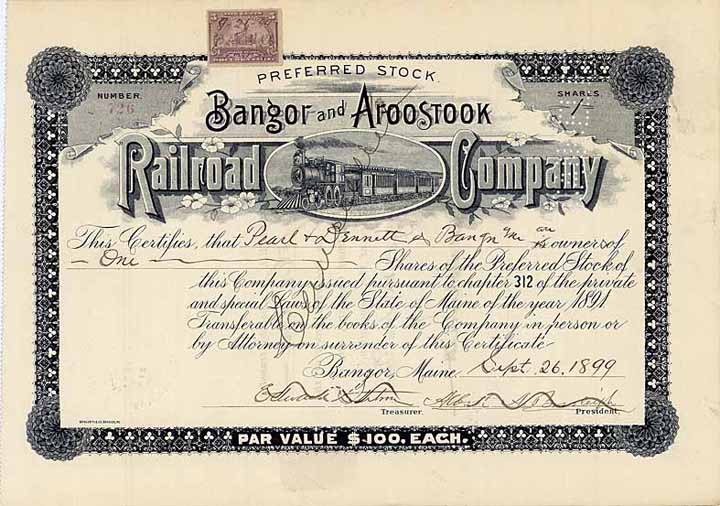 PREFERRED STOCK.
NUMBER
726
SHARES
1
Bangor and Aroostook
Railroad Company
This Certifies, that Pearl & Dennett of Bangor Me an owners of
One Shares of the Preferred Stock of
this Company issued pursuant to chapter 312 of the private
and special Laws of the State of Maine of the year 1891
Transferable on the books of the Company in person or
by Attorney on surrender of this Certificate
Bangor, Maine Sept. 26. 1899
Edward
Albert
Treasurer.
President.
PAR VALUE $100. EACH.